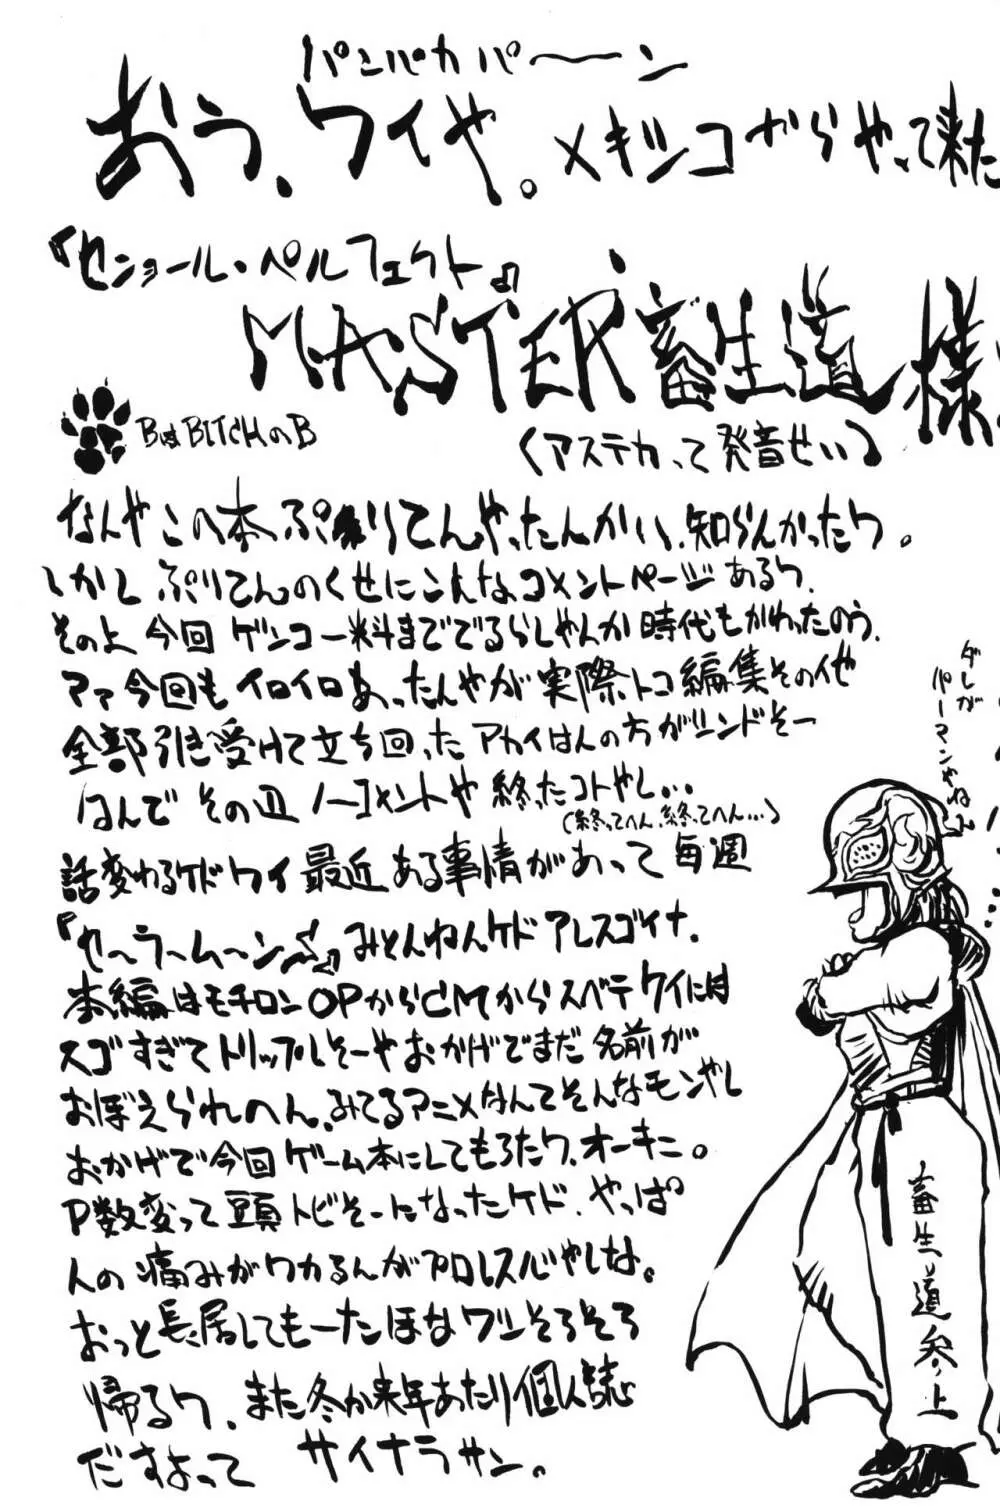 パンパカパ〜ン
おう、ワイや。メキシコからやって来た
『セニョール・ペルフェクト』
MASTER畜生道様
BはBITCHのB
（アステカって発音せい）
なんやこの本ぷりてんやったんかい、知らんかったワ。
しかしぷりてんのくせにこんなコメントページあるワ、
その上今回ゲンコー料まででるらしやんか時代もかわったのう、
マァ今回もイロイロあったんやが実際トコ編集その他
全部引き受けて立ち回ったアカイはんの方がシンドそー
なんでその辺ノーコメントや終ったコトやし…
（終ってへん、終ってへん…）
話変わるケドワイ最近ある事情があって毎週
『セ〜ラ〜ム〜ンS』みとんねんケドアレスゴイナ、
本編はモチロンOPからCMからスベテワイには
スゴすぎてトリップしそーやおかげでまだ名前が
おぼえられへん、みてるアニメなんてそんなモンやし
おかげで今回ゲーム本にしてもろたワ、オーキニ。
P数変って頭トビそーになったケド、やっぱ
人の痛みがワカるんがプロレス心やしな。
おっと長居してもーたほなワシそろそろ
帰るワ、また冬か来年あたり個人誌
だすよって サイナラサン。
ダレが
パーマンやねん
畜生道参上